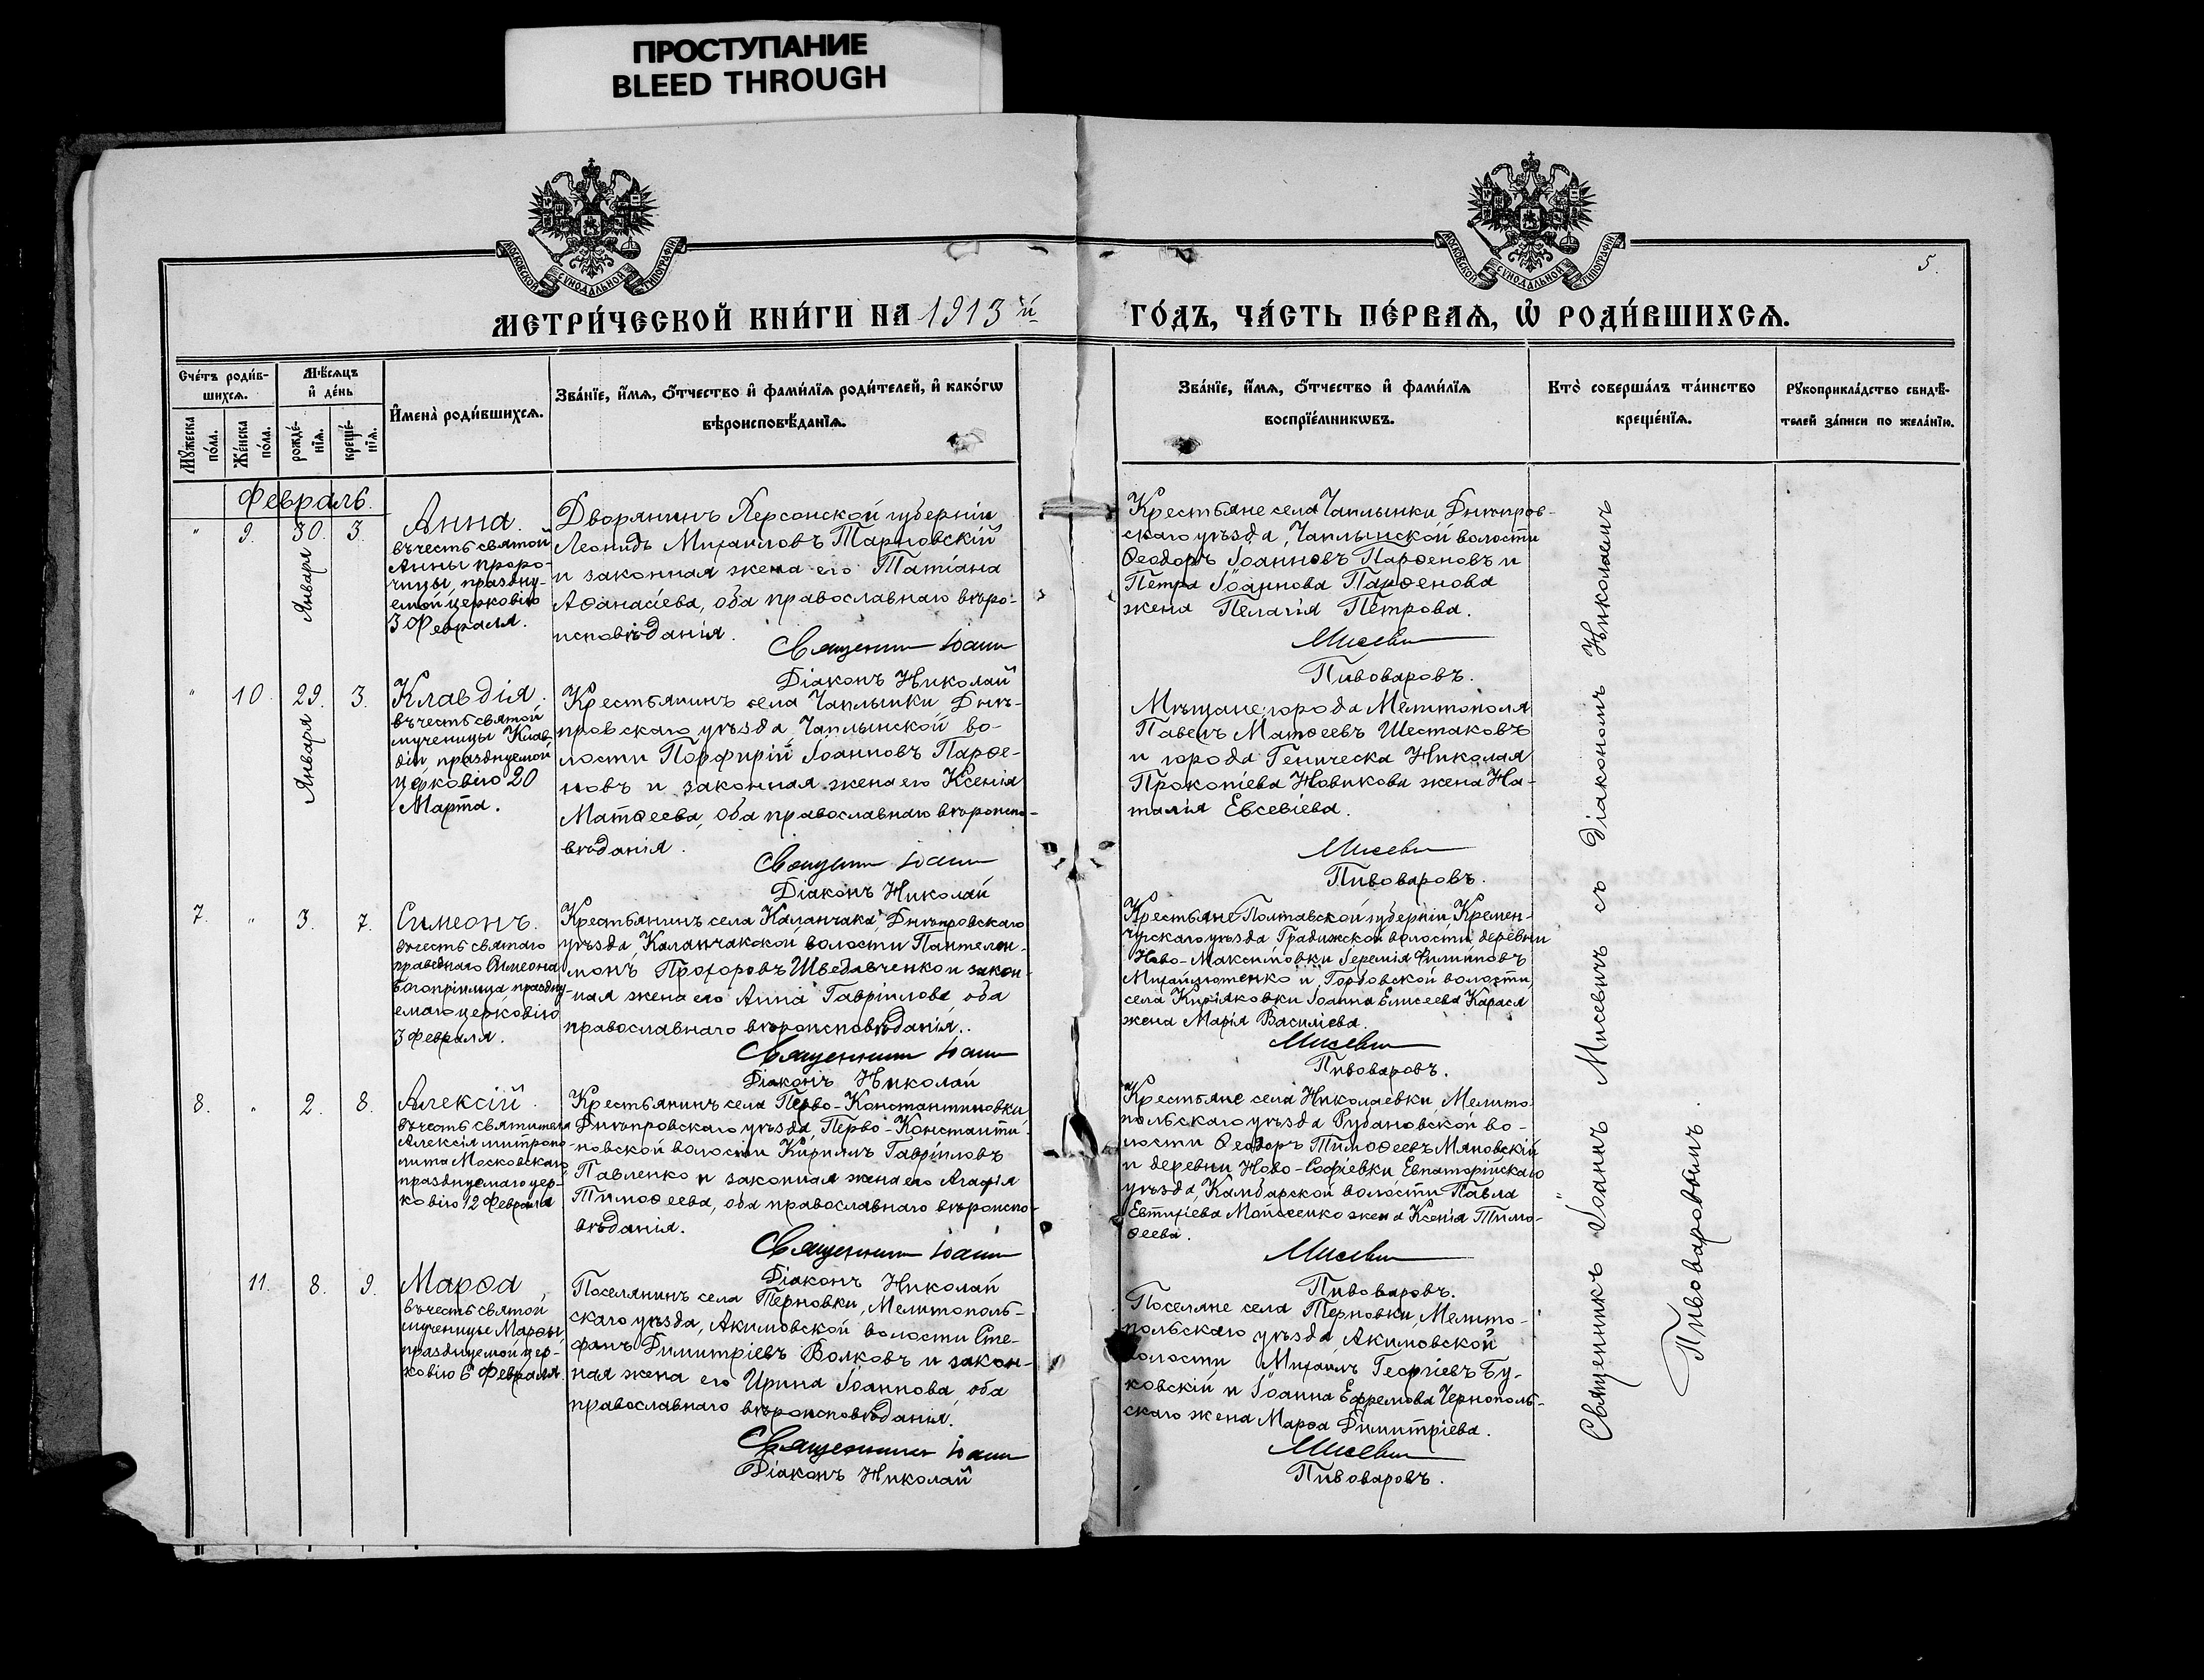 ПРОСТУПАНИЕ
BLEED THROUGH
МОСКОВСКОЙ СѴНОДАЛЬНОЙ ТИПОГРАФІИ
МОСКОВСКОЙ СѴНОДАЛЬНОЙ ТИПОГРАФІИ
5.
МЕТРИ́ЧЕСКОЙ КНИ́ГИ НА 1913 й
ГО́ДЪ, ЧА́СТЬ ПЕ́РВАѦ, Ѽ РОДИ́ВШИХСѦ.
Сче́тъ роди́в-
шихсѧ.
Мꙋ́жеска
по́ла.
Же́нска
по́ла.
Мѣ́сѧцъ
и҆ де́нь
рожде́-
нїѧ.
креще́-
нїѧ.
И҆мена̀ роди́вшихсѧ.
Зва́нїе, и҆́мѧ, ѻ҆́тчество и҆ фами́лїѧ роди́телей, и҆ како́гѡ
вѣроисповѣ́данїѧ.
Зва́нїе, и҆́мѧ, ѻ҆́тчество и҆ фами́лїѧ
воспрїе́мникѡвъ.
Кто̀ соверша́лъ та́инство
креще́нїѧ.
Рꙋкоприкла́дство свидѣ́-
телей за́писи по жела́нїю.
Февраль.
" 9. 30. 3.
Января
Анна.
въ честь святой
Анны проро-
чицы, праздну-
емой церковію
3 Февраля.
Дворянинъ Херсонской губерніи
Леонидъ Михаиловъ Тарновскій
и законная жена его Татіана
Аѳанасіева, оба православнаго вѣро-
исповѣданія.
Священникъ Іоаннъ
Діаконъ Николай
Крестьяне села Чаплынки, Днѣпров-
скаго уѣзда, Чаплынской волости
Ѳеодоръ Іоанновъ Парѳеновъ и
Петра Іоаннова Парѳенова
жена Пелагія Петрова.
Мисевичъ
Пивоваровъ.
" 10. 29. 3.
Января
Клавдія.
въ честь святой
мученицы Клав-
діи, празднуемой
церковію 20
Марта.
Крестьянинъ села Чаплынки, Днѣ-
провскаго уѣзда, Чаплынской во-
лости Порфирій Іоанновъ Парѳе-
новъ и законная жена его Ксенія
Матѳеева, оба православнаго вѣроиспо-
вѣданія.
Священникъ Іоаннъ
Діаконъ Николай
Мѣщане: города Мелитополя
Павелъ Матѳеевъ Шестаковъ
и города Геническа Николая
Прокопіева Новикова жена На-
талія Евсевіева.
Мисевичъ
Пивоваровъ.
7. " 3. 7.
Симеонъ.
въ честь святаго
праведнаго Симеона
Богопріимца, праздну-
емаго церковію
3 Февраля.
Крестьянинъ села Каланчака, Днѣпровскаго
уѣзда, Каланчакской волости Пантелеи-
монъ Прохоровъ Шведавченко и закон-
ная жена его Анна Гавріилова, оба
православнаго вѣроисповѣданія.
Священникъ Іоаннъ
Діаконъ Николай
Крестьяне Полтавской губерніи Кремен-
чугскаго уѣзда Градижской волости, деревни
Ново-Максимовки Іеремія Филипповъ
и Горбовской волости,
села Киріяковки Іоанна Елисеева Карася
жена Марія Василіева.
Мисевичъ
Пивоваровъ.
8. " 2. 8.
Алексій.
въ честь святителя
Алексія митропо-
лита Московскаго,
празднуемаго цер-
ковію 12 Февраля
Крестьянинъ села Перво-Константиновки
Днѣпровскаго уѣзда, Перво-Константи-
новской волости Кириллъ Гавріиловъ
Павленко и законная жена его Агафія
Тимоѳеева, оба православнаго вѣроиспо-
вѣданія.
Священникъ Іоаннъ
Діаконъ Николай
Крестьяне села Николаевки, Мелито-
польскаго уѣзда Рубановской во-
лости Ѳеодоръ Тимоѳеевъ Мяновскій
и деревни Ново-Софіевки, Евпаторійскаго
уѣзда, Камбарской волости Павла
Евтихіева Мойсеенко жена Ксенія Тимо-
ѳеева.
Мисевичъ
Пивоваровъ.
11. 8. 9.
Марѳа
въ честь святой
мученицы Марѳы,
празднуемой цер-
ковію 6 Февраля.
Поселянинъ села Терновки, Мелитополь-
скаго уѣзда, Акимовской волости Сте-
фанъ Димитріевъ Волковъ и закон-
ная жена его Ирина Іоаннова, оба
православнаго вѣроисповѣданія.
Священникъ Іоаннъ
Діаконъ Николай
Поселяне села Терновки, Мелито-
польскаго уѣзда Акимовской
волости Михаилъ Георгіевъ Бу-
ковскій и Іоанна Ефремова Чернополь-
скаго жена Марѳа Димитріева.
Мисевичъ
Пивоваровъ.
Священникъ Іоаннъ Мисевичъ съ діакономъ Николаемъ
Пивоваровымъ.